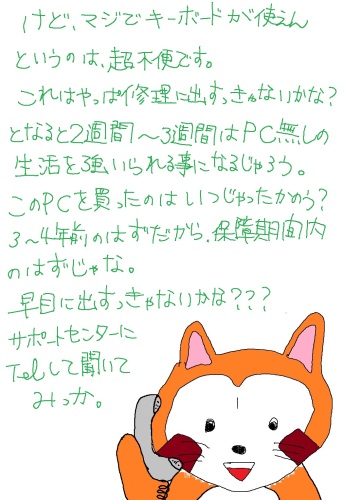 けど、マジでキーボードが使えん
というのは、超不便です。
これはやっぱ修理に出すっきゃないかな?
となると2週間～3週間はPC無しの
生活を強いられる事になるじゃろう。
このPCを買ったのはいつじゃったかのう?
3～4年前のはずだから、保障期間内
のはずじゃな。
早目に出すっきゃないかな???
サポートセンターに
Telして聞いて
みっか。